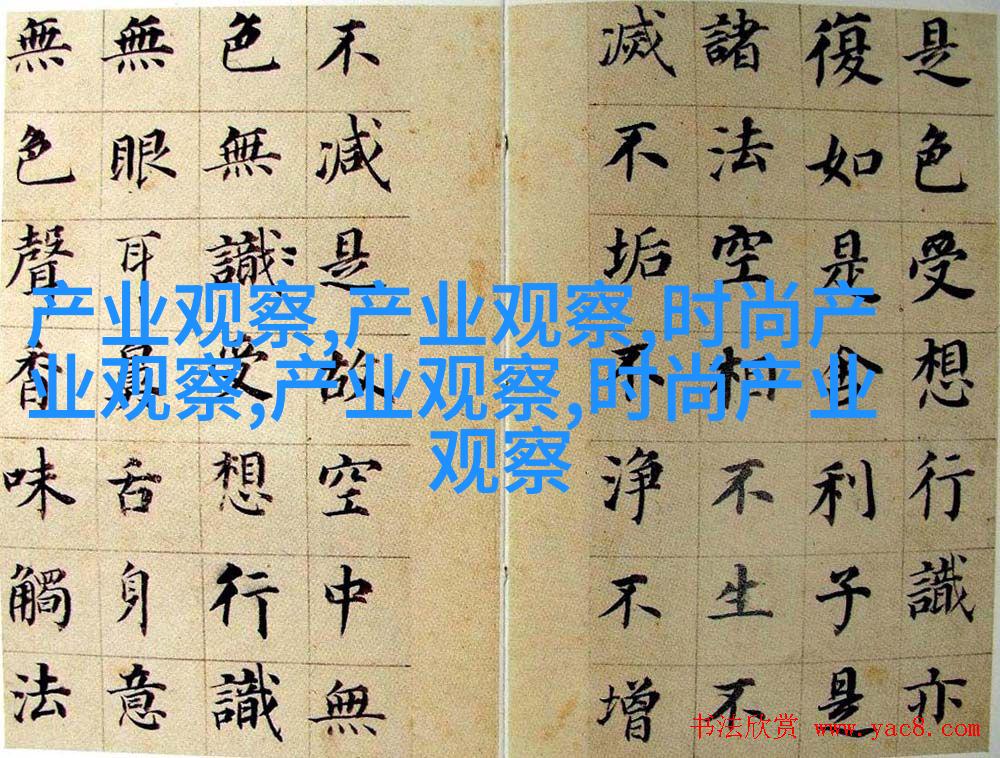 是色受想行識亦
復如是舍利子是
諸法空相不生不
滅不垢不淨不增
不減是故空中無
色無識受想行識
無眼耳鼻舌身意
無色聲香味觸法
产业观察,产业观察,时尚产
业观察,产业观察,时尚产业
观察
书法欣赏 www.yac8.com